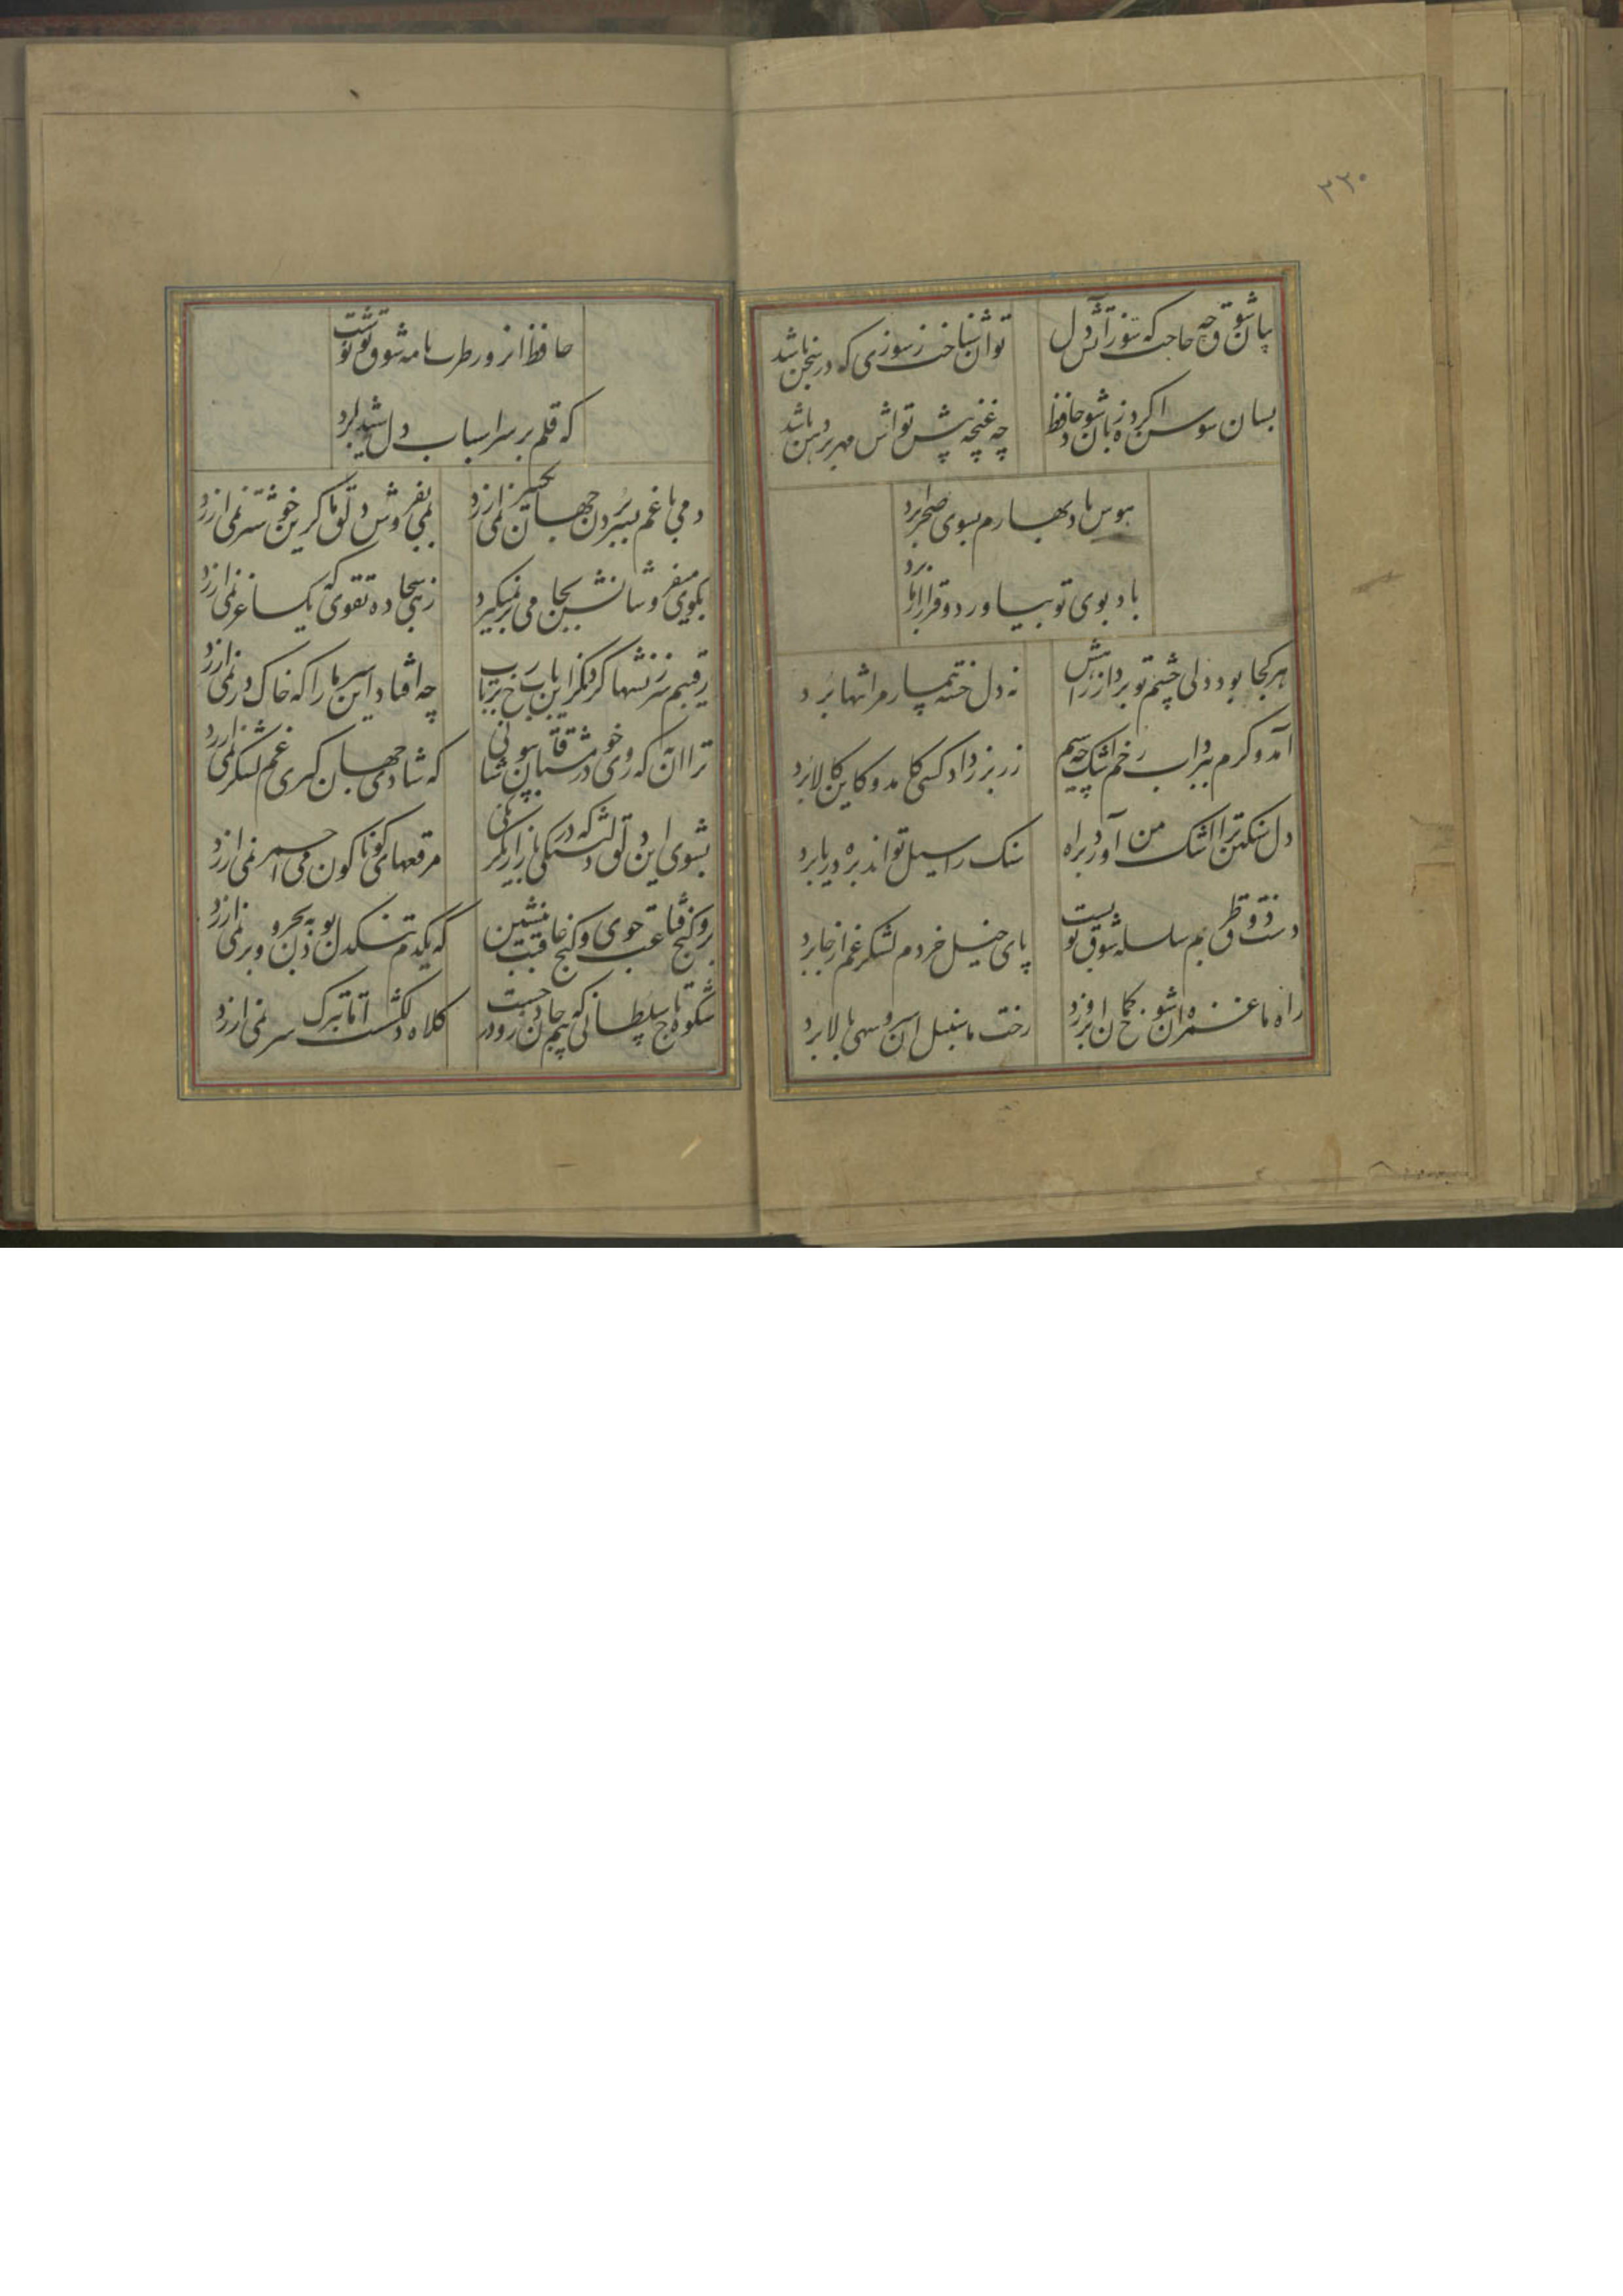 ۳۲۰
بیان شوق چه حاجت که سوز آتش دل
توان شناخت ز سوزی که در سخن باشد
بسان سوسن اگر ده زبان شود حافظ
چه غنچه پیش تواش مهر بر دهن باشد
هوس باد بهارم بسوی صحرا برد
باد بوی تو بیاورد و قرار از ما برد
هر کجا بود دلی چشم تو برد از راهش
نه دل خسته بیمار مرا تنها برد
آمد و کرم ببرد آب رخم اشک چه سیم
زر بزر داد کسی کامد و کاین کالا برد
دل سنکین ترا اشک من آورد براه
سنک را سیل تواند بره دریا برد
دست ذوق طربم سلسله شوق تو بست
پای خیل خردم لشکر غم از جا برد
راه ما غمزه آن شوخ کمان ابرو زد
رخت ما سنبل آن سرو سهی بالا برد
حافظ از ورطرب نامه شوق تو نوشت
که قلم بر سر اسباب دل شیدا برد
دمی با غم بسر بردن جهان یکسر نمی ارزد
بمی بفروش دلق ما کزین خوشتر نمی ارزد
بکوی میفروشانش بجامی بر نمیکیرد
زهی سجاده تقوی که یک ساغر نمی ارزد
رقیبم سرزنشها کرد کز این باب رخ برتاب
چه افتاد این سر ما را که خاک در نمی ارزد
ترا آن به که روی خود ز مشتاقان بپوشانی
که شادی جهان کیری غم لشکر نمی ارزد
بشوی این دلق دلتنکی که در بازار یکرنکی
مرقعهای کوناکون می احمر نمی ارزد
برو کنج قناعت جوی و کنج عافیت بنشین
که یکدم تنکدل بودن به بحر و بر نمی ارزد
شکوه تاج سلطانی که بیم جان درو درجست
کلاه دلکش است اما بترک سر نمی ارزد